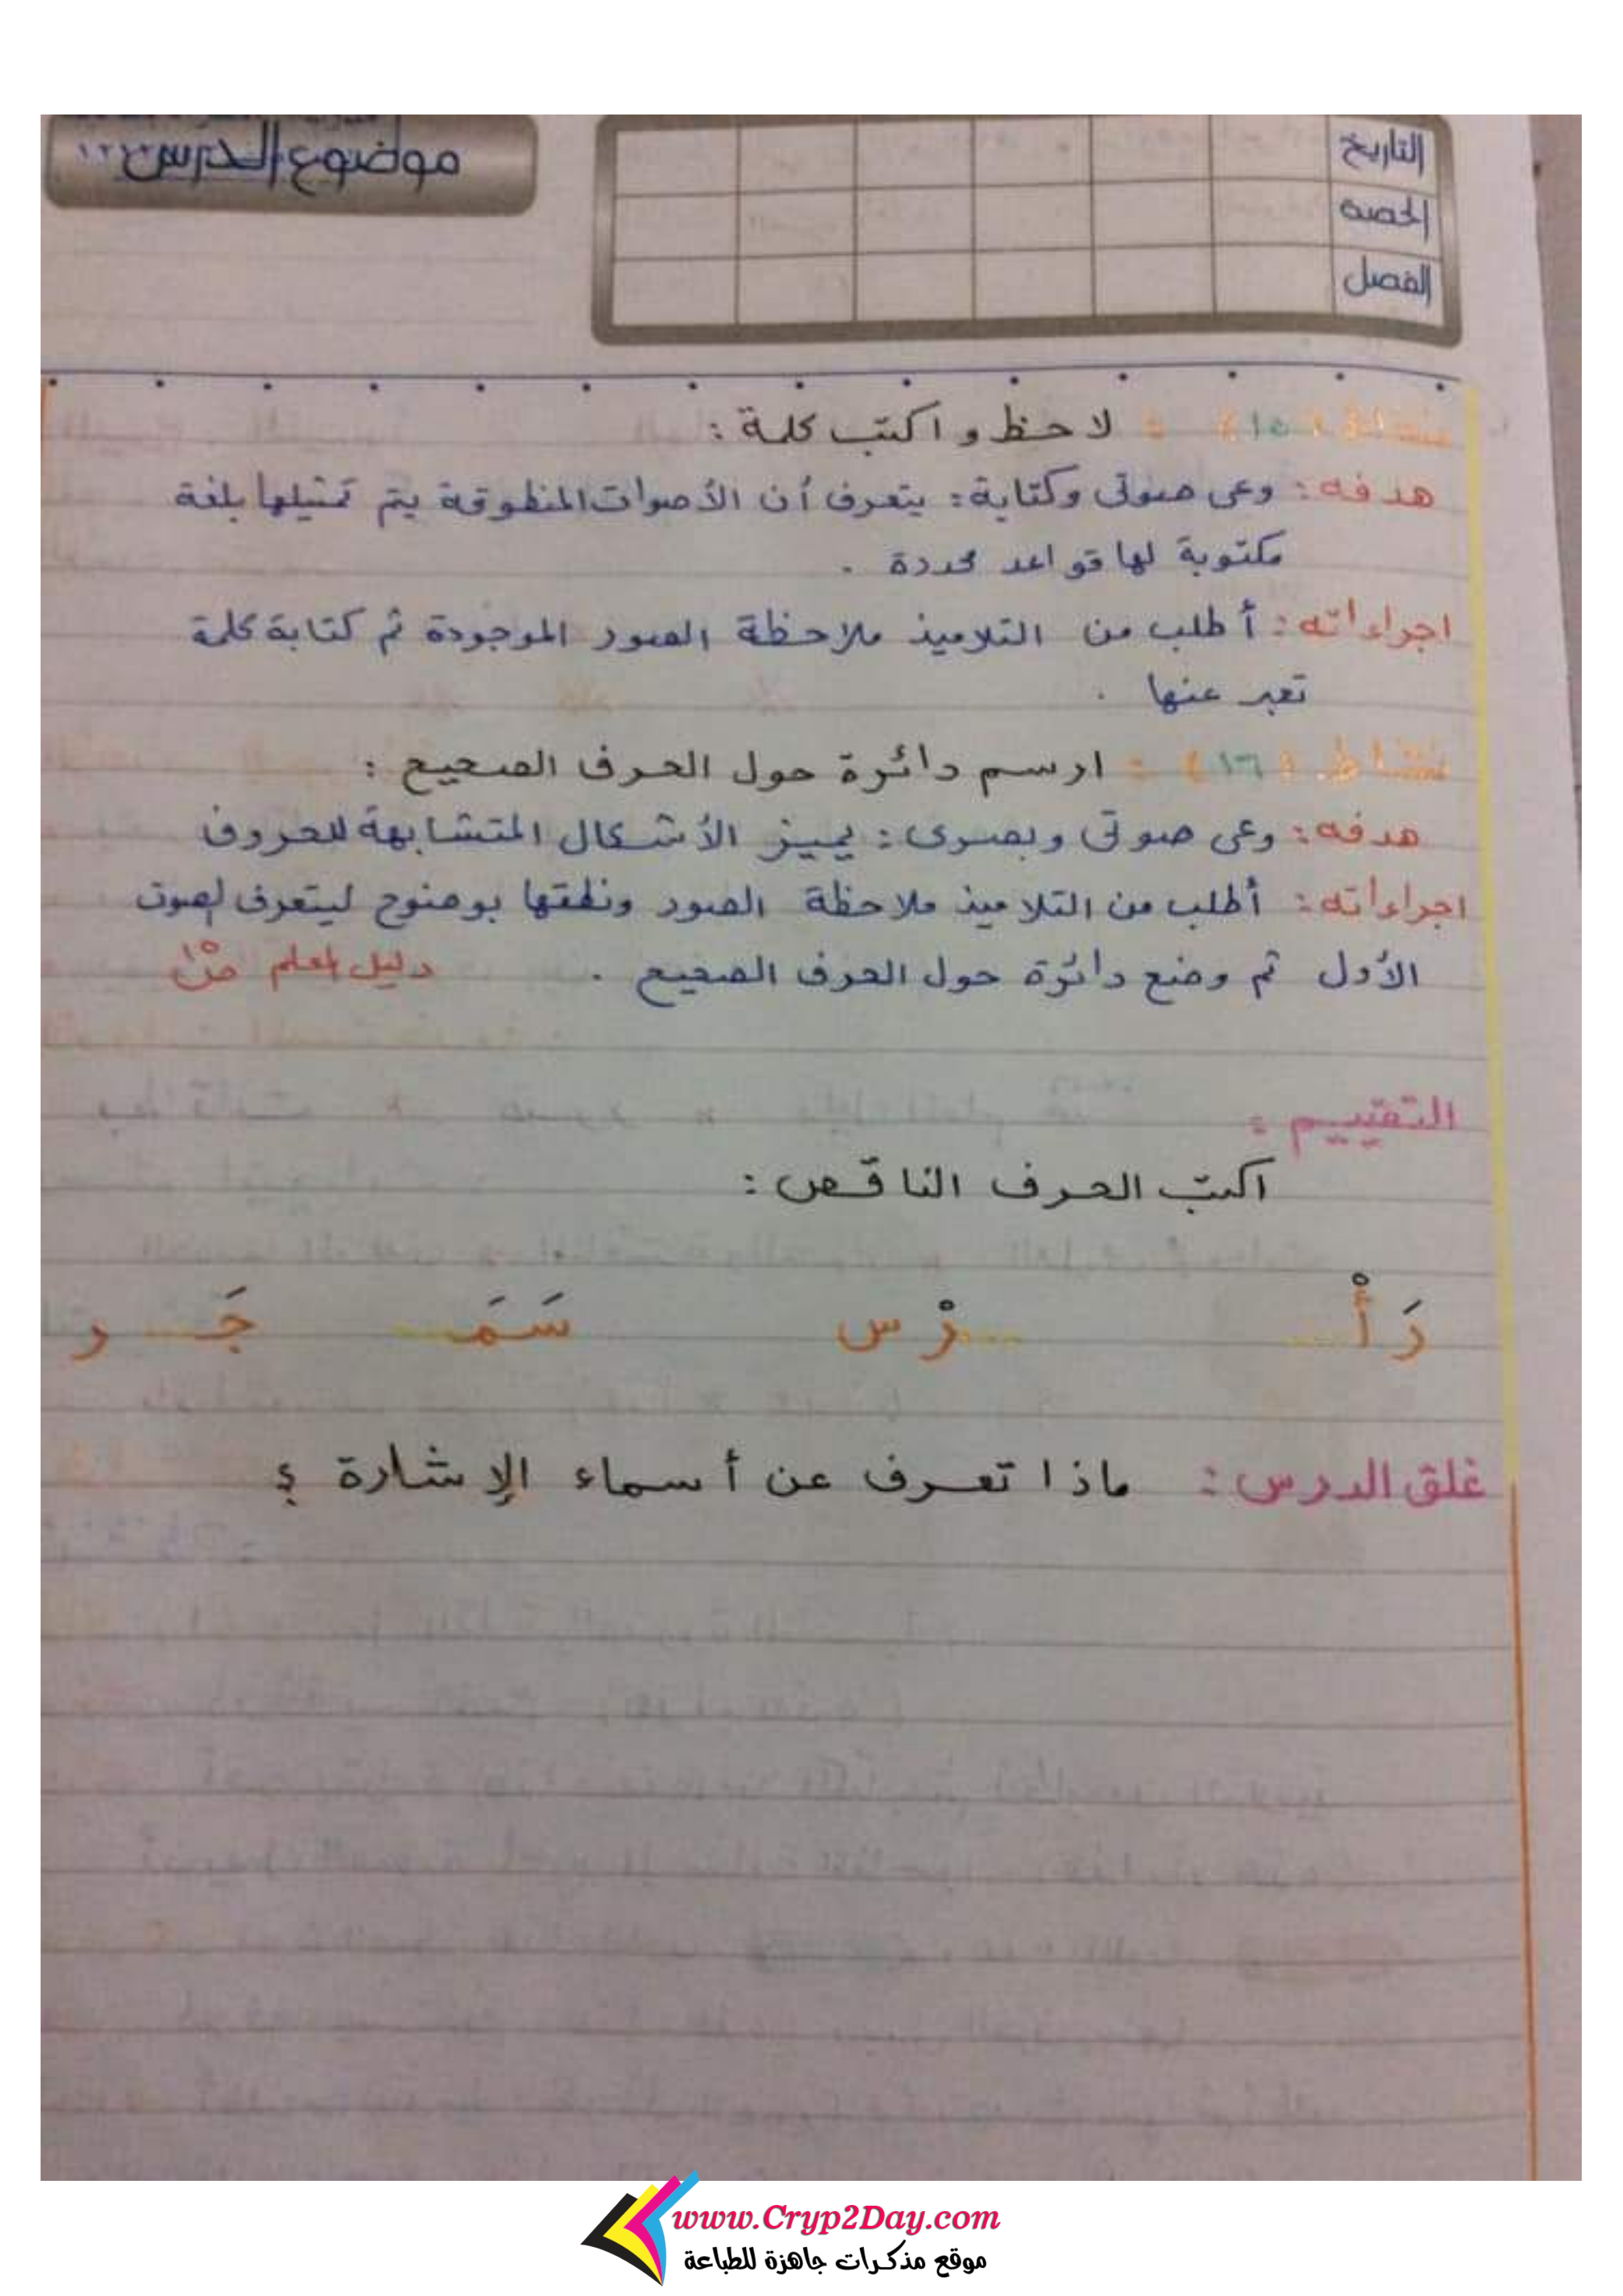 موضوع الدرس
التاريخ
الحصة
الفصل
نشاط (١٥) : لاحظ و اكتب كلمة :
هدفه : وعى صوتى وكتابة : يتعرف أن الأصوات المنطوقة يتم تمثيلها بلغة
مكتوبة لها قواعد محددة .
اجراءاته : أطلب من التلاميذ ملاحظة الصور الموجودة ثم كتابة كلمة
تعبر عنها .
نشاط (١٦) : ارسم دائرة حول الحرف الصحيح :
هدفه : وعى صوتى وبصرى : يميز الأشكال المتشابهة للحروف
اجراءاته : أطلب من التلاميذ ملاحظة الصور ونطقها بوضوح ليتعرف لصوت
الأول ثم وضع دائرة حول الحرف الصحيح . دليل المعلم
التقييم :
اكتب الحرف الناقص :
رَأْ.... ....رْس سَمَـ.... جَـ....ر
غلق الدرس : ماذا تعرف عن أسماء الإشارة ؟
www.Cryp2Day.com
موقع مذكرات جاهزة للطباعة